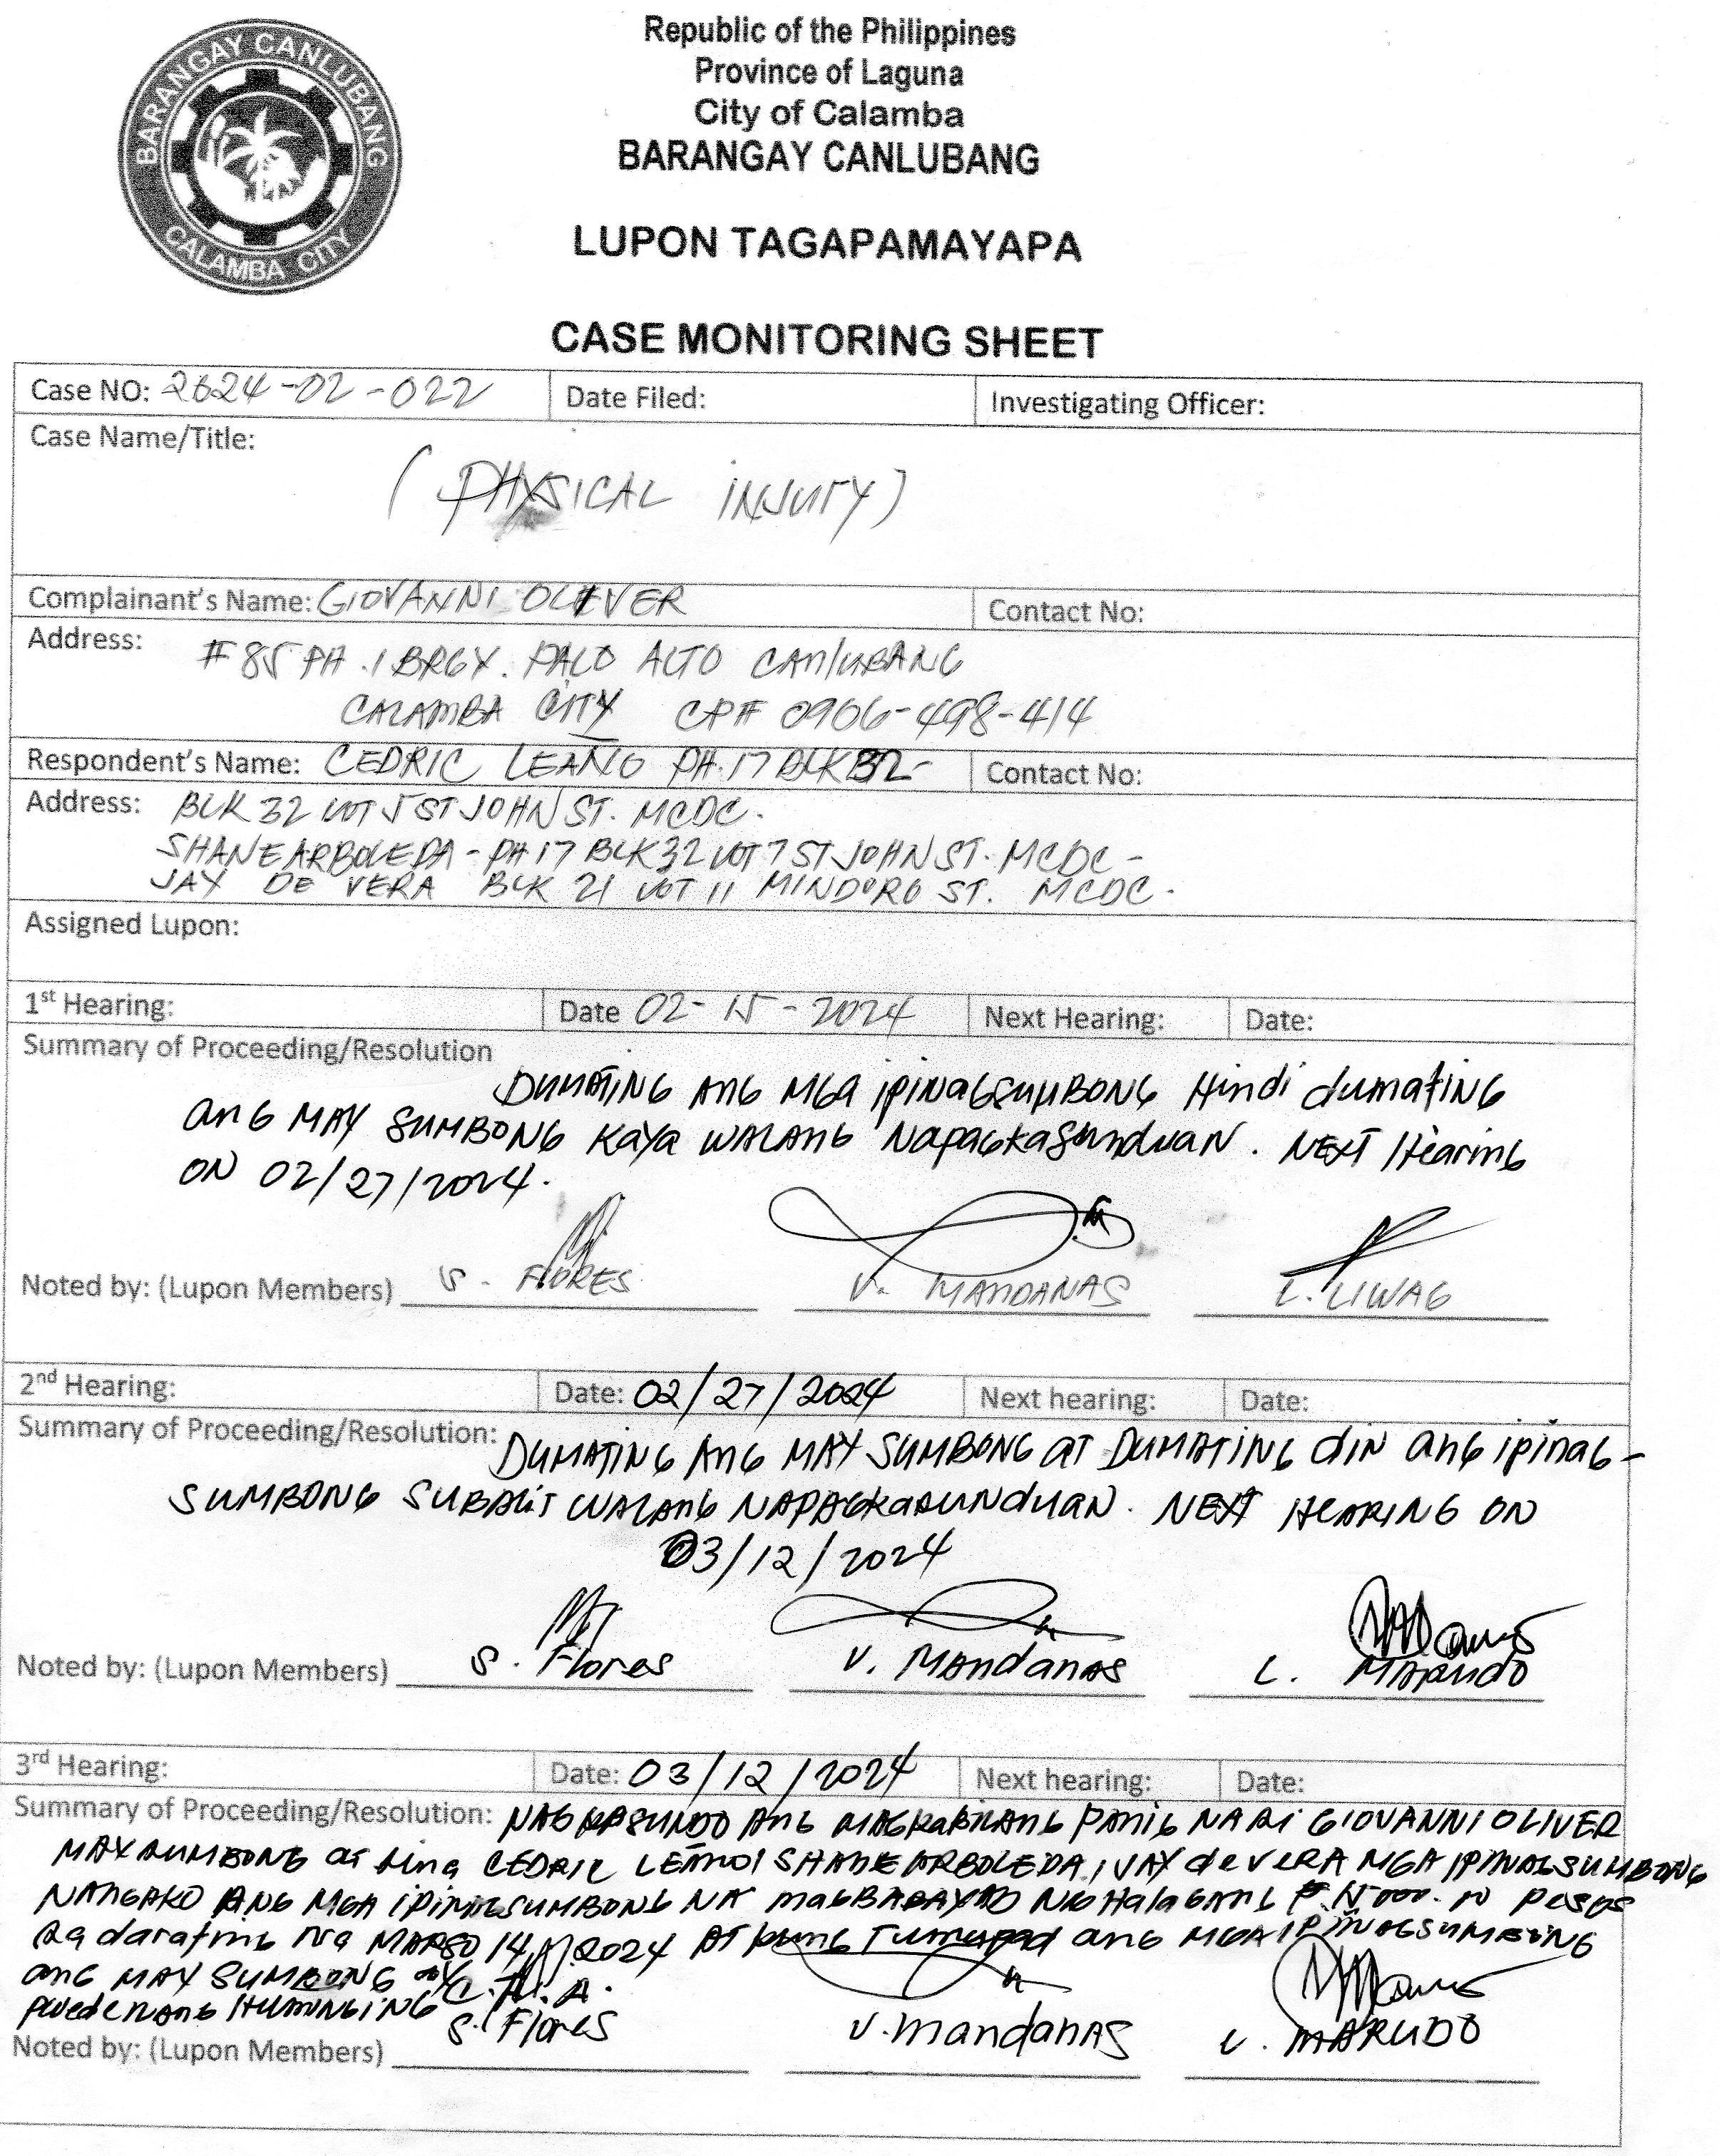 BARANGAY CANLUBANG
CALAMBA CITY
Republic of the Philippines
Province of Laguna
City of Calamba
BARANGAY CANLUBANG
LUPON TAGAPAMAYAPA
CASE MONITORING SHEET
Case NO: 2024-02-022 Date Filed: Investigating Officer:
Case Name/Title:
(PHYSICAL INJURY)
Complainant's Name: GIOVANNI OLIVER Contact No:
Address: #85 PH.1 BRGY. PALO ALTO CANLUBANG
CALAMBA CITY CP# 0906-498-414
Respondent's Name: CEDRIC LEAÑO PH.17 BLK 32- Contact No:
Address: BLK 32 LOT 5 ST JOHN ST. MCDC.
SHANE ARBOLEDA - PH 17 BLK 32 LOT 7 ST JOHN ST. MCDC -
JAY DE VERA BLK 21 LOT 11 MINDORO ST. MCDC.
Assigned Lupon:
1st Hearing: Date 02-15-2024 Next Hearing: Date:
Summary of Proceeding/Resolution
DUMATING ANG MGA IPINAGSUMBONG Hindi dumating
ang MAY SUMBONG KAYA WALANG NAPAGKASUNDUAN. NEXT Hearing
ON 02/27/2024.
Noted by: (Lupon Members) S. FLORES V. MANDANAS L. LIWAG
2nd Hearing: Date: 02/27/2024 Next hearing: Date:
Summary of Proceeding/Resolution: DUMATING ANG MAY SUMBONG AT DUMATING din ang ipinag-
SUMBONG SUBALIT WALANG NAPAGKASUNDUAN. NEXT HEARING ON
03/12/2024
Noted by: (Lupon Members) S. Flores V. Mandanas L. MARUDO
3rd Hearing: Date: 03/12/2024 Next hearing: Date:
Summary of Proceeding/Resolution: NAGKASUNDO ANG MAGKABILANG PANIG NA SI GIOVANNI OLIVER
MAY SUMBONG at sina CEDRIC LEAÑO, SHANE ARBOLEDA, JAY de VERA MGA IPINAGSUMBONG
NANGAKO ANG MGA IPINAGSUMBONG NA MAGBABAYAD NG Halagang ₱ 15,000.00 pesos
sa darating na MARSO 14, 2024 AT kung Tumupad ang MGA IPINAGSUMBONG
ang MAY SUMBONG ay
puede nang HUMINGING C.F.A.
Noted by: (Lupon Members) S. Flores V. mandanas L. MARUDO